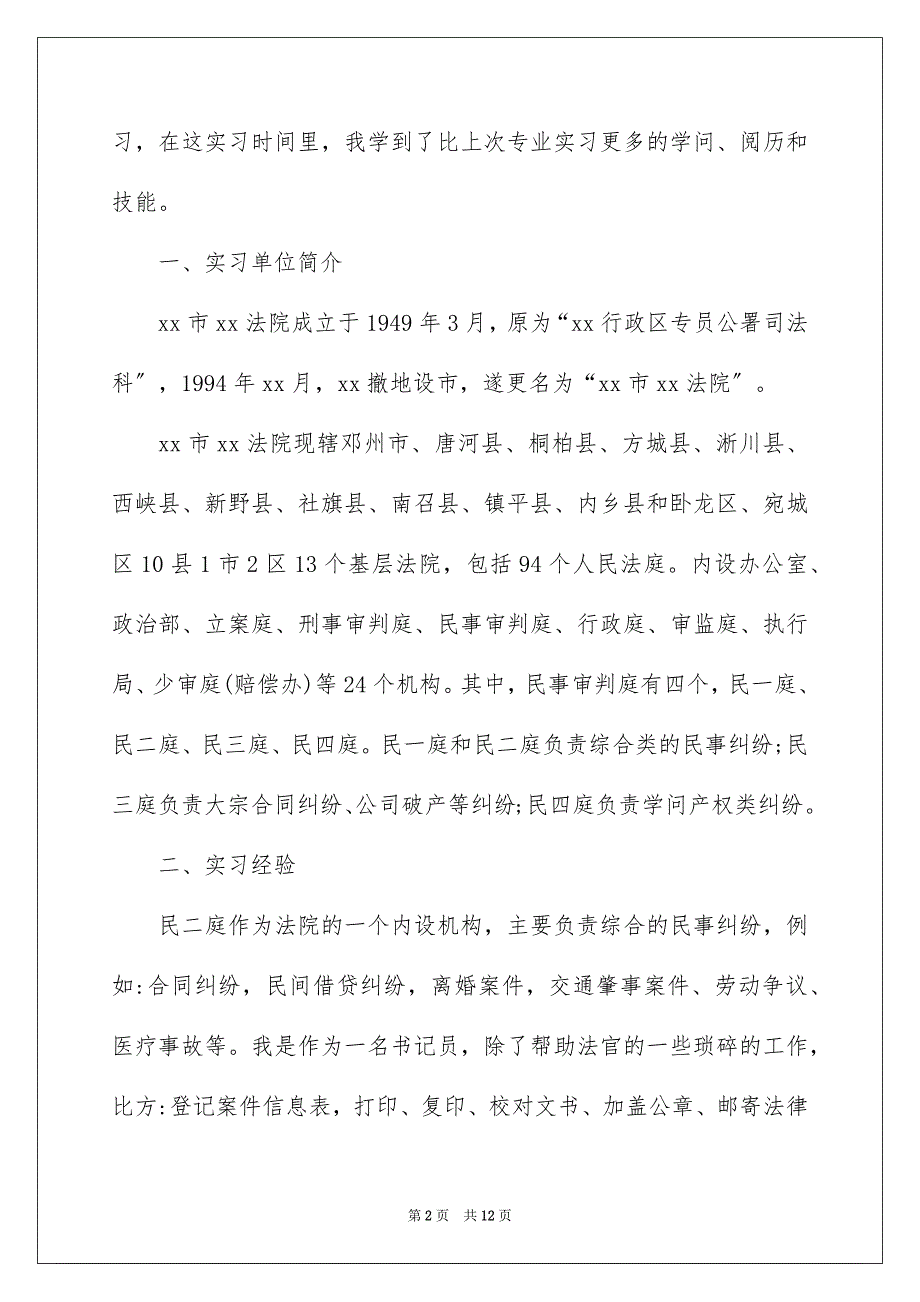 习，在这实习时间里，我学到了比上次专业实习更多的学问、阅历和
技能。
一、实习单位简介
xx 市 xx 法院成立于 1949 年 3 月，原为“xx 行政区专员公署司法
科〞，1994 年 xx 月，xx 撤地设市，遂更名为“xx 市 xx 法院〞。
xx 市 xx 法院现辖邓州市、唐河县、桐柏县、方城县、淅川县、
西峡县、新野县、社旗县、南召县、镇平县、内乡县和卧龙区、宛城
区 10 县 1 市 2 区 13 个基层法院，包括 94 个人民法庭。内设办公室、
政治部、立案庭、刑事审判庭、民事审判庭、行政庭、审监庭、执行
局、少审庭(赔偿办)等 24 个机构。其中，民事审判庭有四个，民一庭、
民二庭、民三庭、民四庭。民一庭和民二庭负责综合类的民事纠纷;民
三庭负责大宗合同纠纷、公司破产等纠纷;民四庭负责学问产权类纠纷。
二、实习经验
民二庭作为法院的一个内设机构，主要负责综合的民事纠纷，例
如:合同纠纷，民间借贷纠纷，离婚案件，交通肇事案件、劳动争议、
医疗事故等。我是作为一名书记员，除了帮助法官的一些琐碎的工作，
比方:登记案件信息表，打印、复印、校对文书、加盖公章、邮寄法律
第 2 页 共 12 页